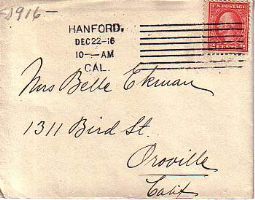 1916-
HANFORD,
DEC 22-16
10-AM
CAL.
Mrs Belle Ekman
1311 Bird St.
Oroville
Calif